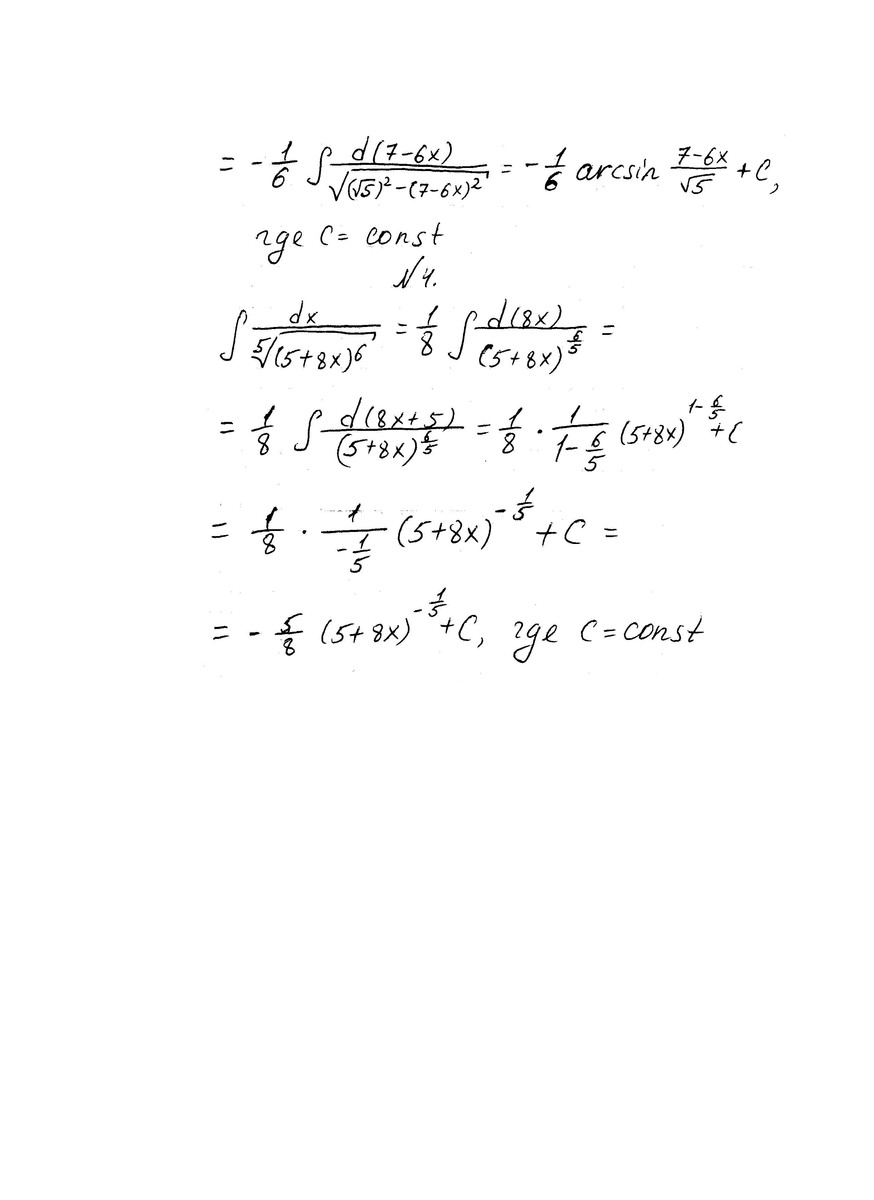 = -1/6 ∫ d(7-6x)/√((√5)²-(7-6x)²) = -1/6 arcsin (7-6x)/√5 + C,
где C = const
N 4.
∫ dx/⁵√((5+8x)⁶) = 1/8 ∫ d(8x)/(5+8x)^(6/5) =
= 1/8 ∫ d(8x+5)/(5+8x)^(6/5) = 1/8 · 1/(1-6/5) (5+8x)^(1-6/5) + C
= 1/8 · 1/(-1/5) (5+8x)^(-1/5) + C =
= -5/8 (5+8x)^(-1/5) + C, где C = const